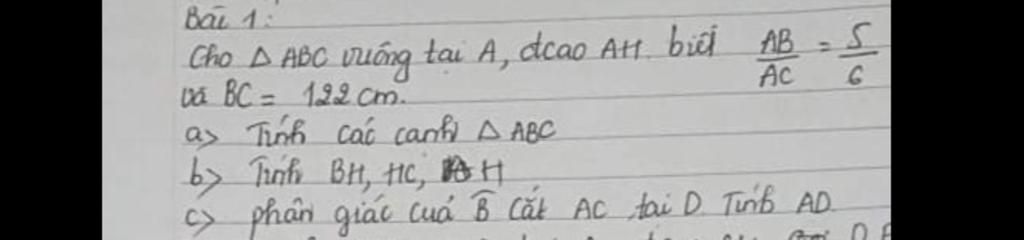 Bài 1:
Cho △ ABC vuông tại A, đcao AH. biết AB/AC = 5/6
và BC = 122 cm.
a> Tính các cạnh △ ABC
b> Tính BH, HC, AH
c> phân giác của B cắt AC tại D. Tính AD